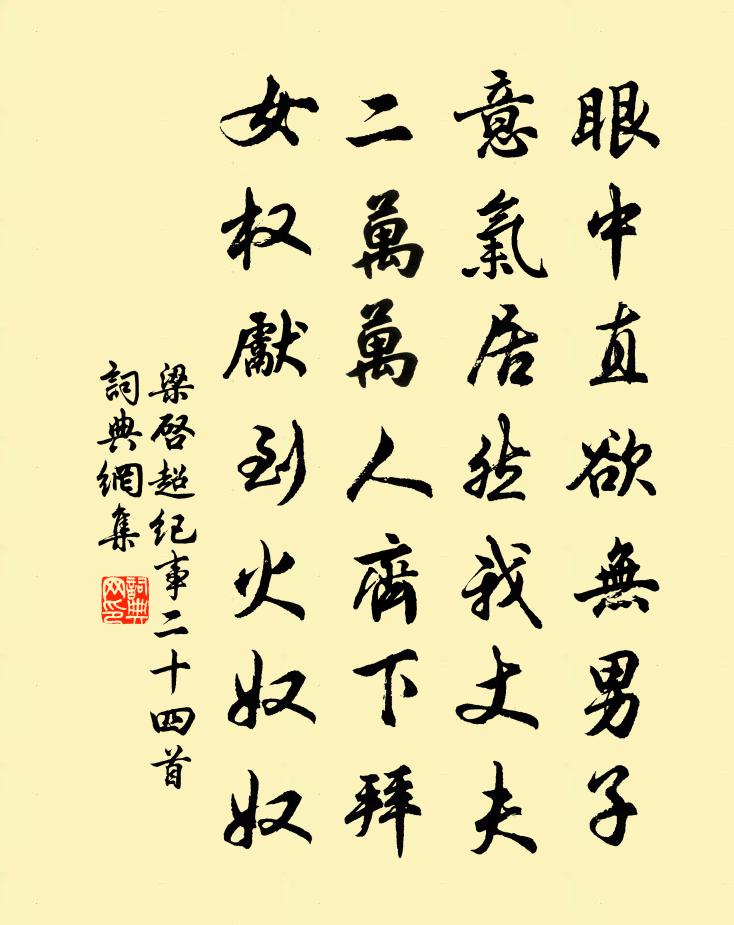 眼中直欲無男子
意氣居然我丈夫
二萬萬人齊下拜
女权獻到火奴奴
梁啓超纪事二十四首
詞典網集
詞典网印